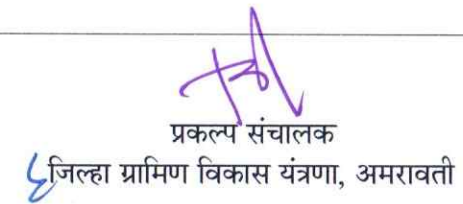 प्रकल्प संचालक
जिल्हा ग्रामिण विकास यंत्रणा, अमरावती